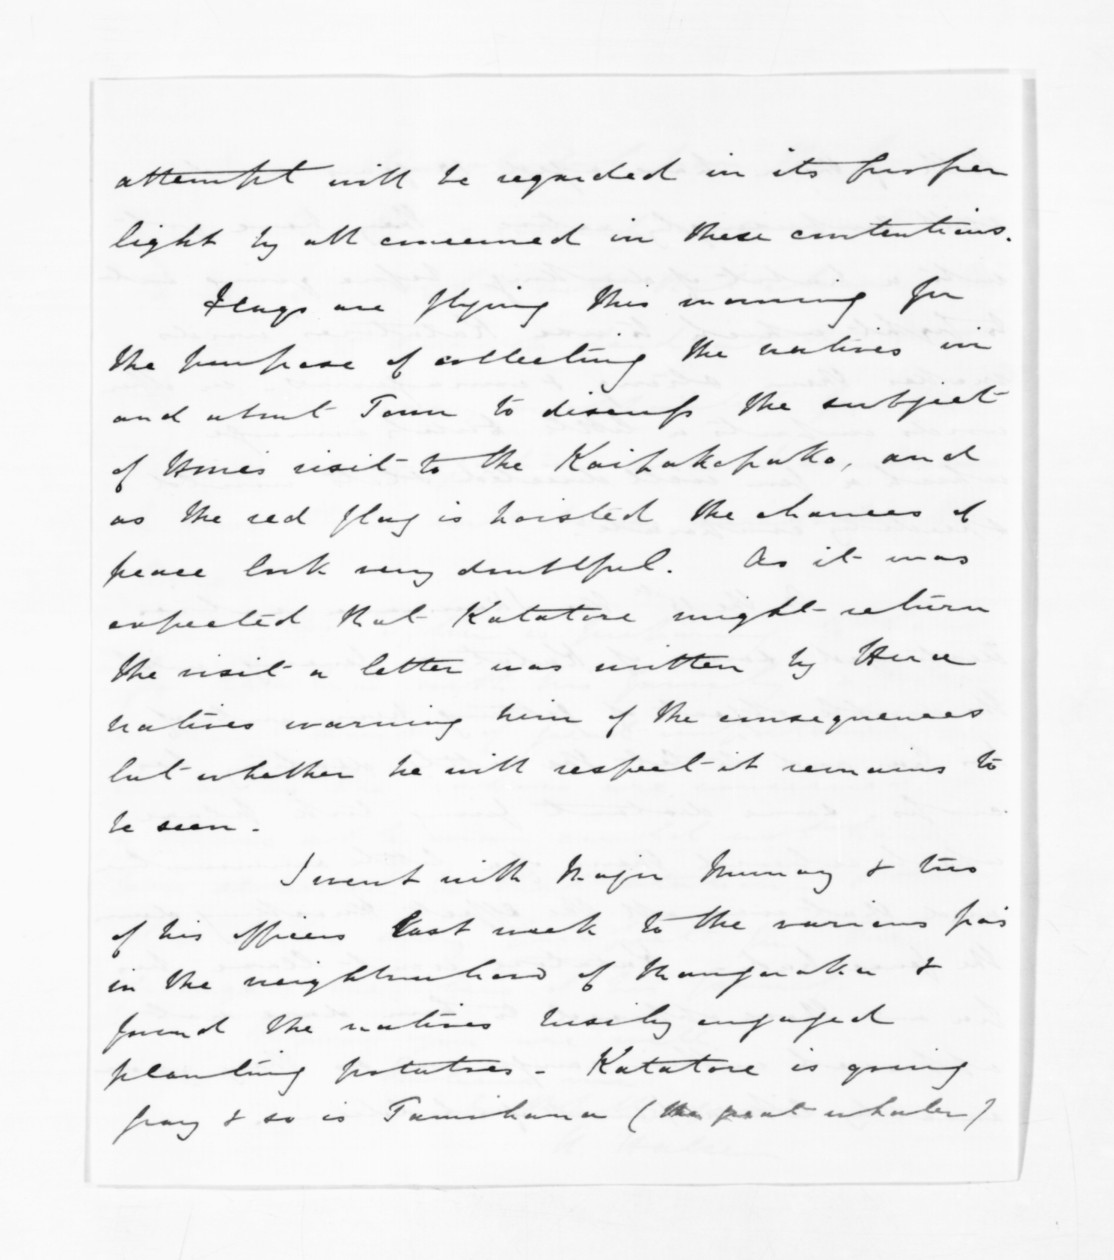 attempt will be regarded in its proper
light by all concerned in these contentions.
Flags are flying this morning for
the purpose of collecting the natives in
and about Town to discuss the subject
of Hone's visit to the Kaipakopako, and
as the red flag is hoisted the chances of
peace look very doubtful. As it was
expected that Katatore might return
the visit a letter was written by these
natives warning him of the consequences
but whether he will respect it remains to
be seen.
I went with Major Murray & two
of his officers last week to the various pas
in the neighbourhood of Mangoraka &
found the natives busily engaged
planting potatoes - Katatore is going
gray & so is Tamihana (the great whaler)